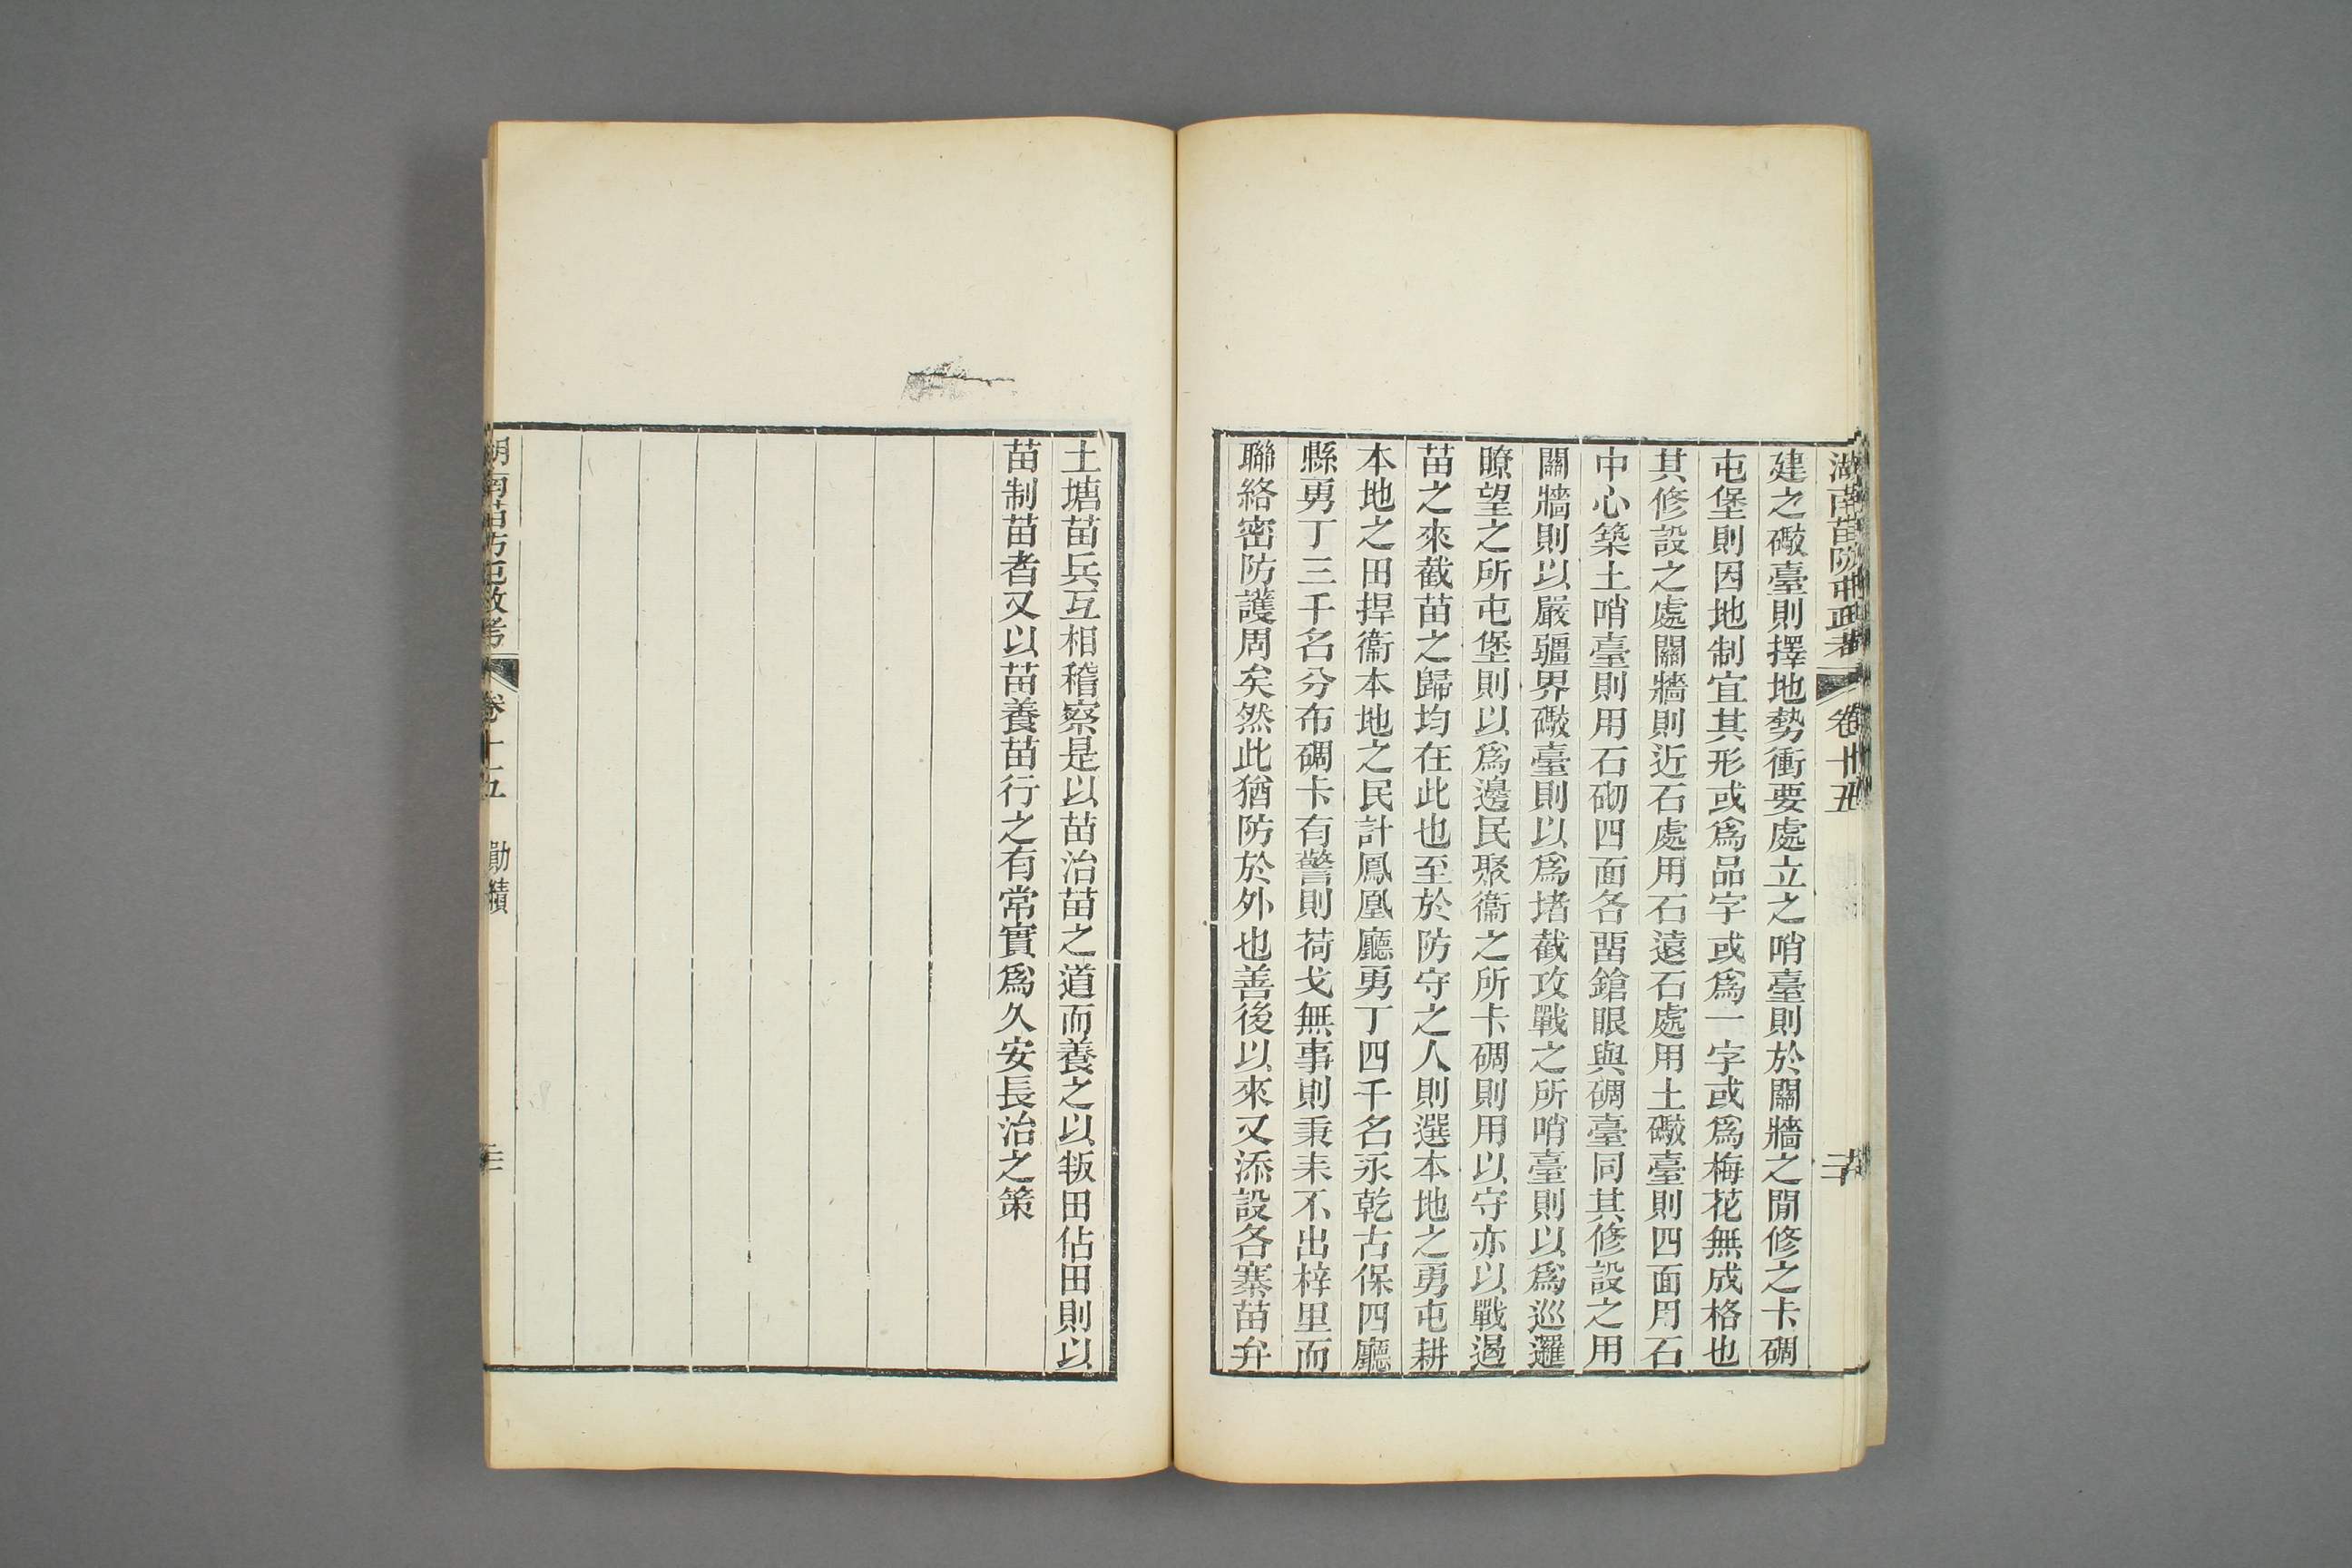 湖南苗防屯政考 卷十五
建之礮臺則擇地勢衝要處立之哨臺則於關牆之閒修之卡碉
屯堡則因地制宜其形或爲品字或爲一字或爲梅花無成格也
其修設之處關牆則近石處用石遠石處用土礮臺則四面用石
中心築土哨臺則用石砌四面各畱鎗眼與碉臺同其修設之用
關牆則以嚴疆界礮臺則以爲堵截攻戰之所哨臺則以爲巡邏
瞭望之所屯堡則以爲邊民聚衞之所卡碉則用以守亦以戰遏
苗之來截苗之歸均在此也至於防守之人則選本地之勇屯耕
本地之田捍衞本地之民計鳳凰廳勇丁四千名永乾古保四廳
縣勇丁三千名分布碉卡有警則荷戈無事則秉耒不出梓里而
聯絡密防護周矣然此猶防於外也善後以來又添設各寨苗弁
土塘苗兵互相稽察是以苗治苗之道而養之以叛田佔田則以
苗制苗者又以苗養苗行之有常實爲久安長治之策
湖南苗防屯政考 卷十五 勛績